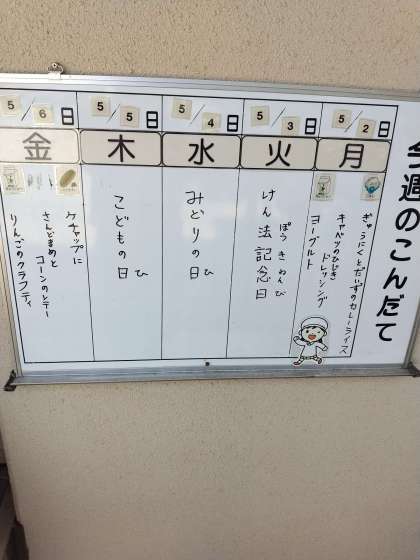 今週のこんだて
5/2日
月
ぎゅうにくとだいずのカレーライス
キャベツのひじきドレッシング
ヨーグルト
5/3日
火
けん法記念日
ぽう きねんび
5/4日
水
みどりの日
び
5/5日
木
こどもの日
ひ
5/6日
金
ケチャップに
さんどまめと
コーンのソテー
りんごのクラフティ